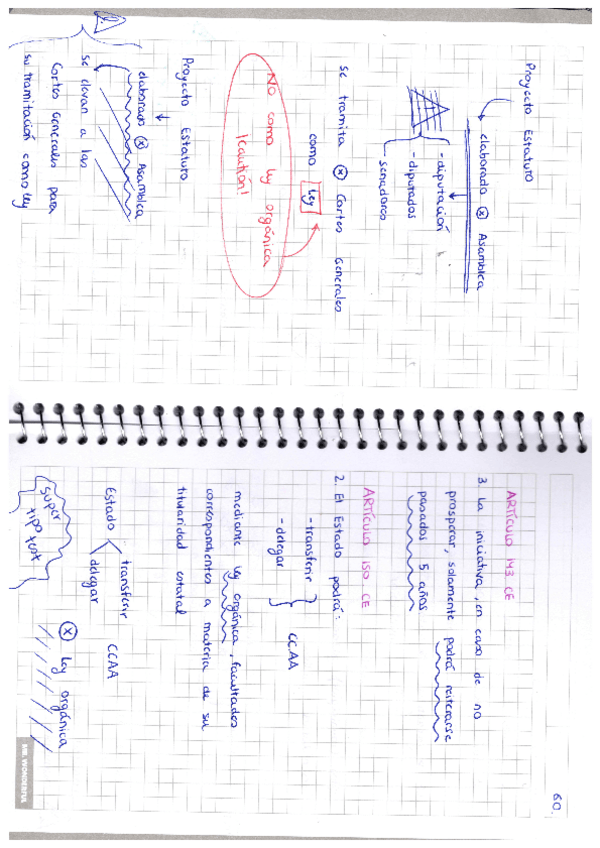 Proyecto Estatuto
elaborado ⓧ Asamblea
- diputación
- diputados
- senadores
se tramita ⓧ Cortes Generales
como ley
No como ley orgánica
¡caution!
Proyecto Estatuto
elaborado ⓧ Asamblea
se elevan a las
Cortes Generales para
su tramitación como ley
60.
ARTÍCULO 143 CE
3. La iniciativa, en caso de no
prosperar, solamente podrá reiterarse
pasados 5 años
ARTÍCULO 150 CE
2. El Estado podrá:
- transferir
- delegar
CCAA
mediante ley orgánica, facultades
correspondientes a materia de su
titularidad estatal
Estado
transferir
delegar
CCAA
ⓧ ley orgánica
super
tipo test
MR. WONDERFUL